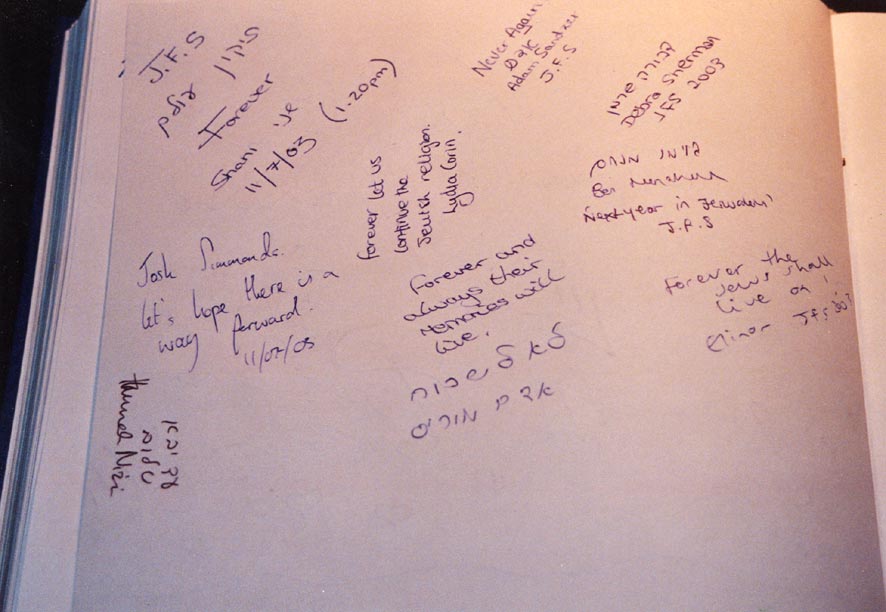 J.F.S
תיקון עולם
Forever
Shani שני
11/7/03 (1.20pm)
Never Again
אדם
Adam
J.F.S
דבורה שרמן
Debra Sherman
JFS 2003
forever let us
continue the
Jewish religion.
Lydia Corin.
Ben Menahem
Next year in Jerusalem!
J.F.S
Josh Simmonds.
Let's hope there is a
way forward.
11/07/03
Forever and
always their
memories will
live.
לא לשכוח
אדם מוריס
Forever the
Jews shall
live on!
Elinor JFS 2003
שלום
Hannah Nizi